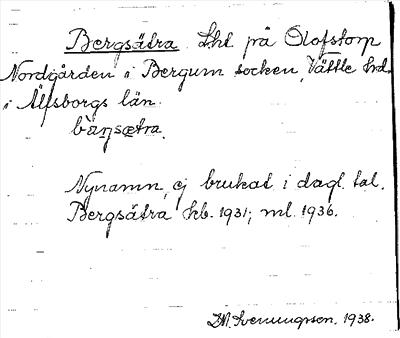 Bergsätra Lht på Olofstorp
Nordgården i Bergum socken, Vättle hd
i Älfsborgs län.
bàŋsætra.
Nynamn, ej brukat i dagl. tal.
Bergsätra kb. 1931; ml. 1936.
1938.